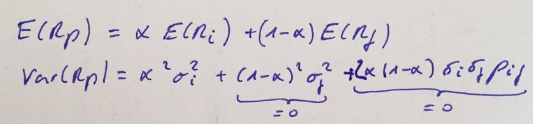 E(Rp) = α E(Ri) + (1-α) E(Rf)
Var(Rp) = α² σi² + (1-α)² σf² + 2α (1-α) σi σf ρif
= 0 = 0